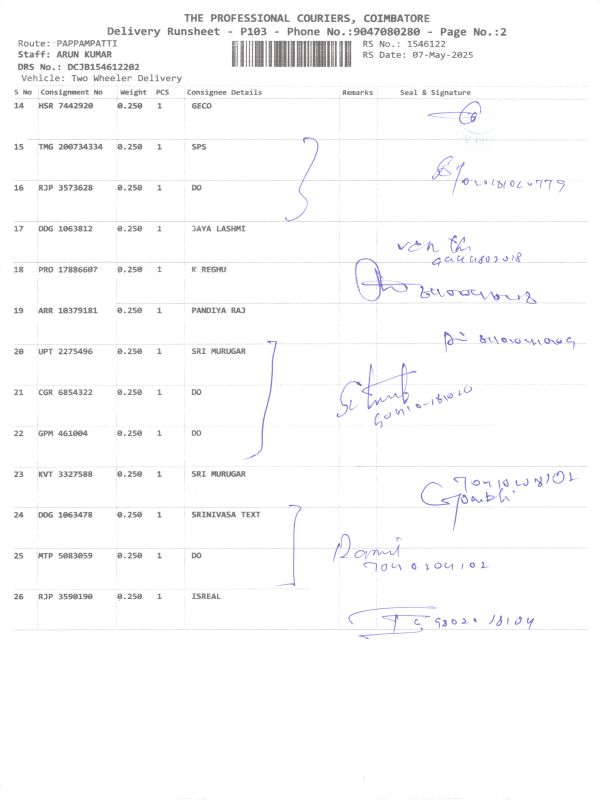 THE PROFESSIONAL COURIERS, COIMBATORE
Delivery Runsheet - P103 - Phone No.:9047080280 - Page No.:2
Route: PAPPAMPATTI RS No.: 1546122
Staff: ARUN KUMAR RS Date: 07-May-2025
DRS No.: DCJB154612202
Vehicle: Two Wheeler Delivery
S No Consignment No Weight PCS Consignee Details Remarks Seal & Signature
14 HSR 7442920 0.250 1 GECO
15 TMG 200734334 0.250 1 SPS
16 RJP 3573628 0.250 1 DO
17 DDG 1063812 0.250 1 JAYA LASHMI
18 PRO 17886607 0.250 1 K REGHU
19 ARR 10379181 0.250 1 PANDIYA RAJ
20 UPT 2275496 0.250 1 SRI MURUGAR
21 CGR 6854322 0.250 1 DO
22 GPM 461004 0.250 1 DO
23 KVT 3327588 0.250 1 SRI MURUGAR
24 DDG 1063478 0.250 1 SRINIVASA TEXT
25 MTP 5083059 0.250 1 DO
26 RJP 3590190 0.250 1 ISREAL